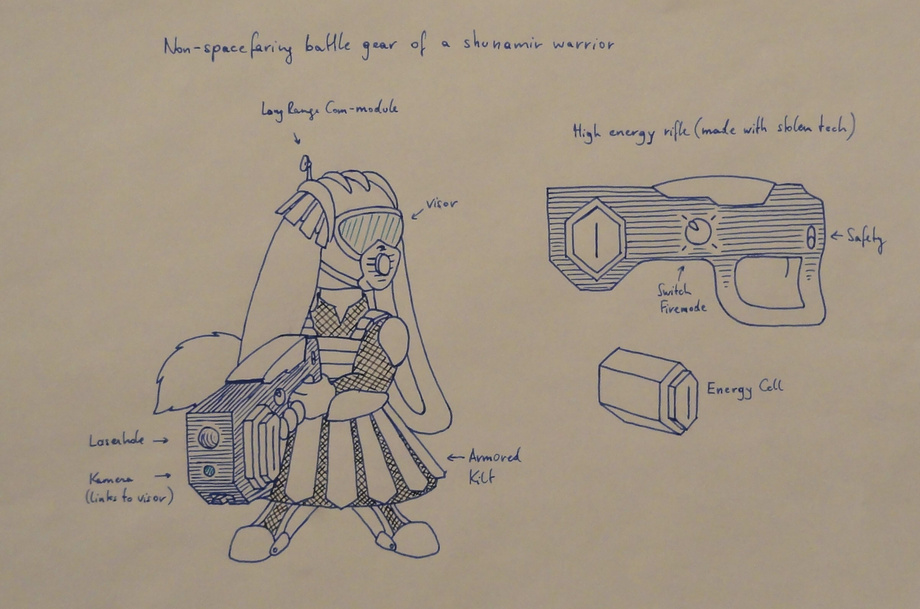 Non-spacefaring battle gear of a shunamir warrior
Long Range Com-module
visor
High energy rifle (made with stolen tech)
← Safety
Switch
Firemode
Energy Cell
Laserhole →
Kamera →
(links to visor)
← Armored
Kilt